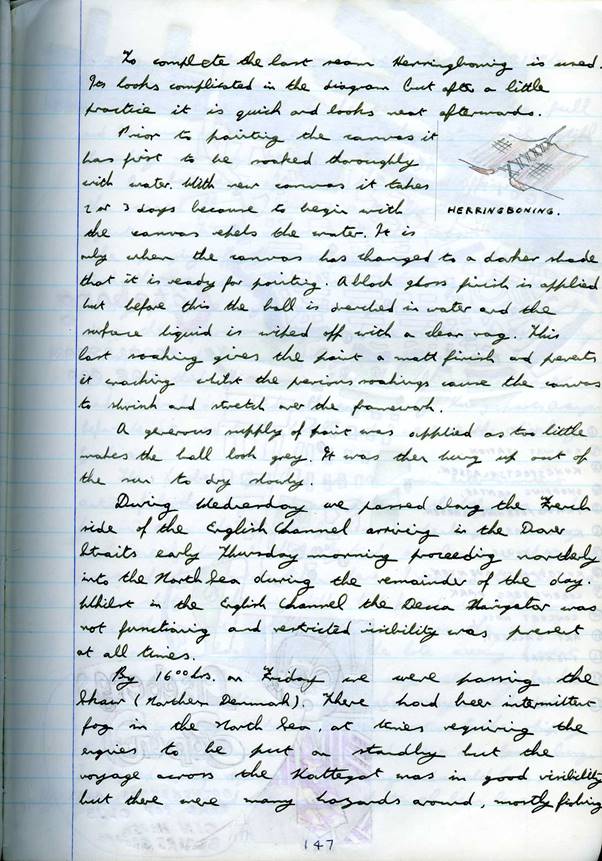 To complete the last seam Herringboning is used.
Its looks complicated in the diagram but after a little
practice it is quick and looks neat afterwards.
Prior to painting the canvas it
has first to be soaked thoroughly
with water. With new canvas it takes
2 or 3 days because to begin with
the canvas repels the water. It is
HERRINGBONING.
only when the canvas has changed to a darker shade
that it is ready for painting. A black gloss finish is applied
but before this the ball is drenched in water and the
surface liquid is wiped off with a clean rag. This
last soaking gives the paint a matt finish and prevents
it cracking whilst the previous soakings cause the canvas
to shrink and stretch over the framework.
A generous supply of paint was applied as too little
makes the ball look grey. It was then hung up out of
the sun to dry slowly.
During Wednesday we passed along the French
side of the English Channel arriving in the Dover
Straits early Thursday morning proceeding northerly
into the North Sea during the remainder of the day.
Whilst in the English Channel the Decca Navigator was
not functioning and restricted visibility was present
at all times.
By 1600 hrs. on Friday we were passing the
Skaw (Northern Denmark). There had been intermittent
fog in the North Sea, at times requiring the
engines to be put on standby but the
voyage across the Kattegat was in good visibility
but there were many hazards around, mostly fishing
147